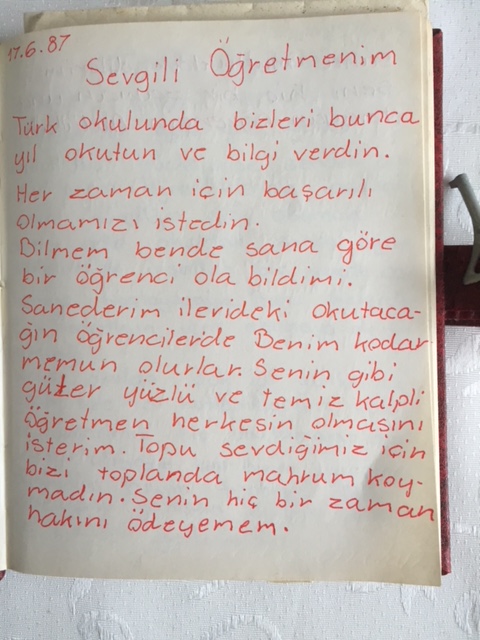 17.6.87
Sevgili Öğretmenim
Türk okulunda bizleri bunca
yıl okutun ve bilgi verdin.
Her zaman için başarılı
olmamızı istedin.
Bilmem bende sana göre
bir öğrenci ola bildimi.
Sanederim ilerideki okutaca-
ğın öğrencilerde Benim kadar
memun olurlar. Senin gibi
güzer yüzlü ve temiz kalpli
öğretmen herkesin olmasını
isterim. Topu sevdiğimiz için
bizi toplanda mahrum koy-
madın. Senin hiç bir zaman
hakını ödeyemem.